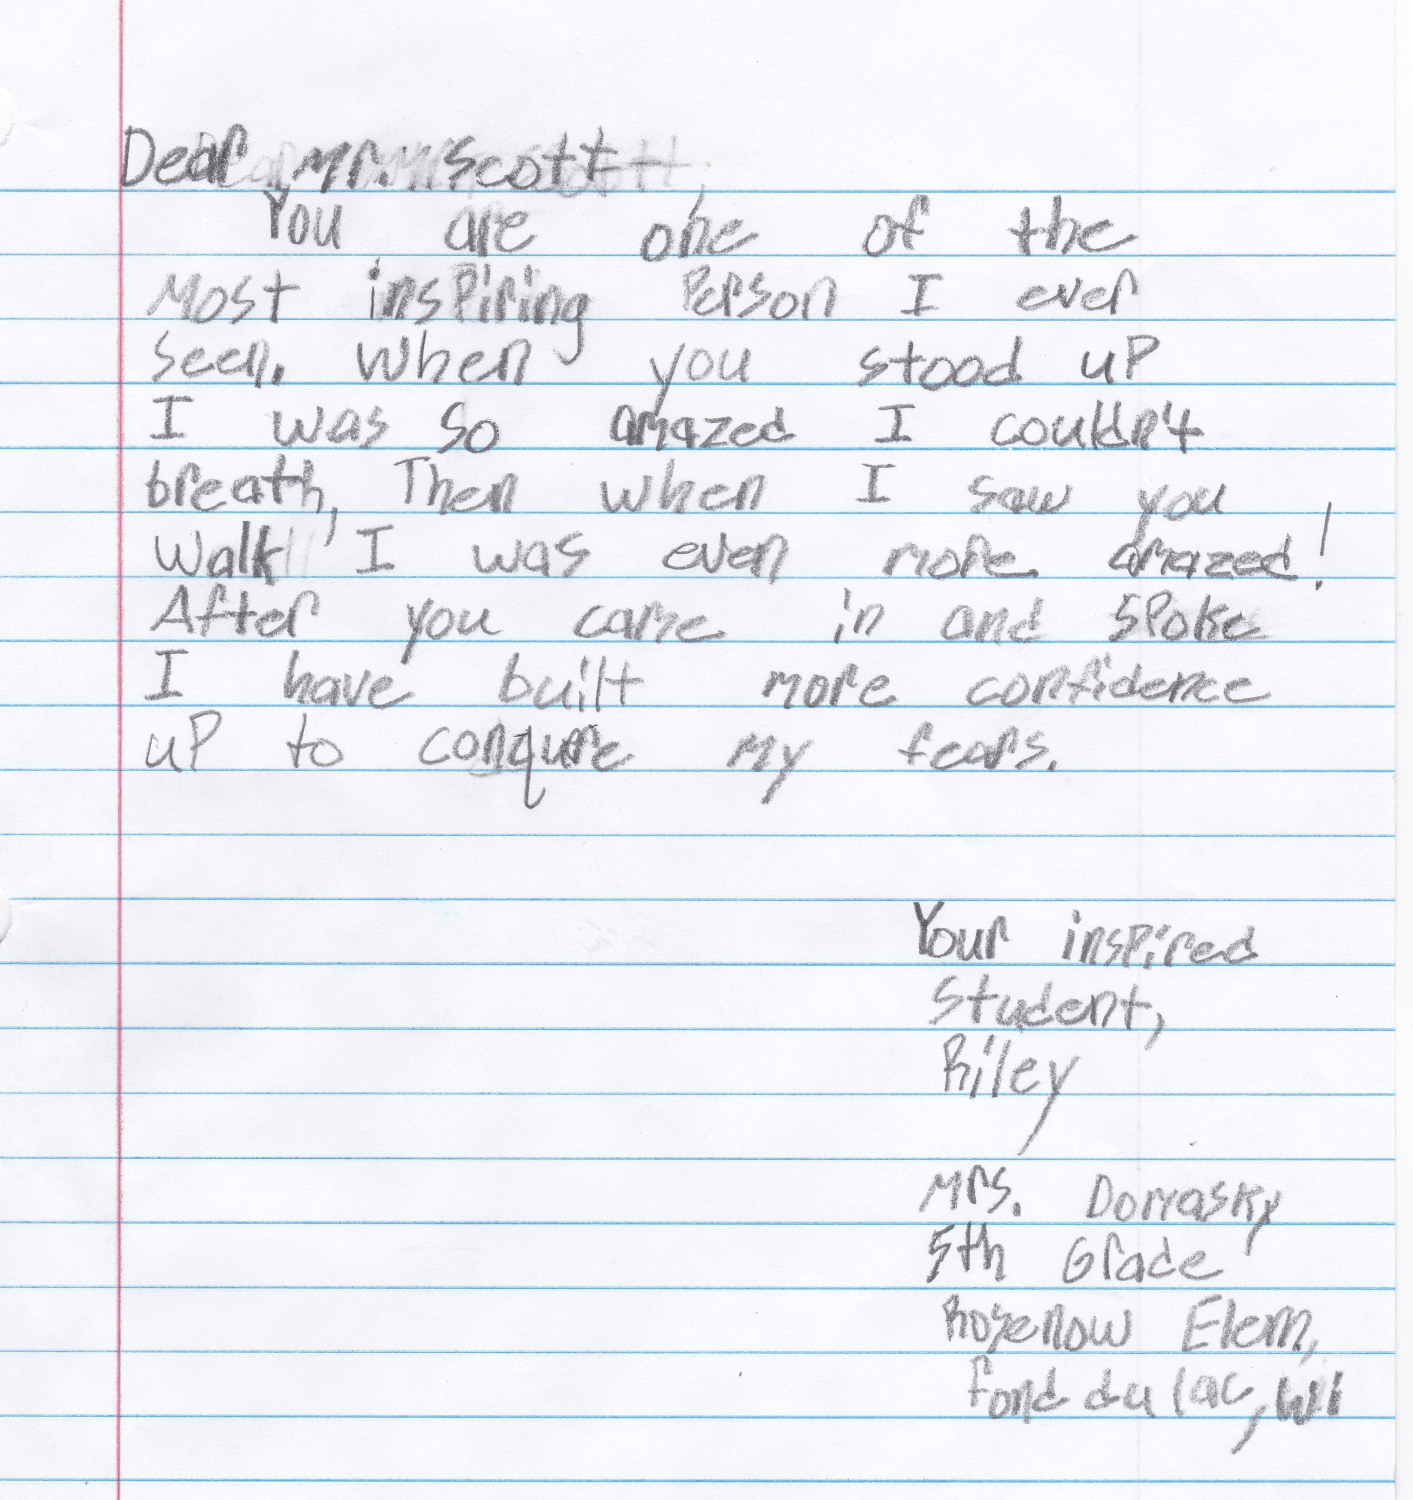 Dear Mr. Scott,
You are one of the
Most insPiring Person I ever
seen. When you stood uP
I was so amazed I couldn't
breath, Then when I saw you
walk, I was even more amazed!
After you came in and sPoke
I have built more confidence
uP to conqure my fears.
Your insPired
student,
Riley
Mrs. Domasky
5th Grade
Rosenow Elem,
fond du lac, Wi